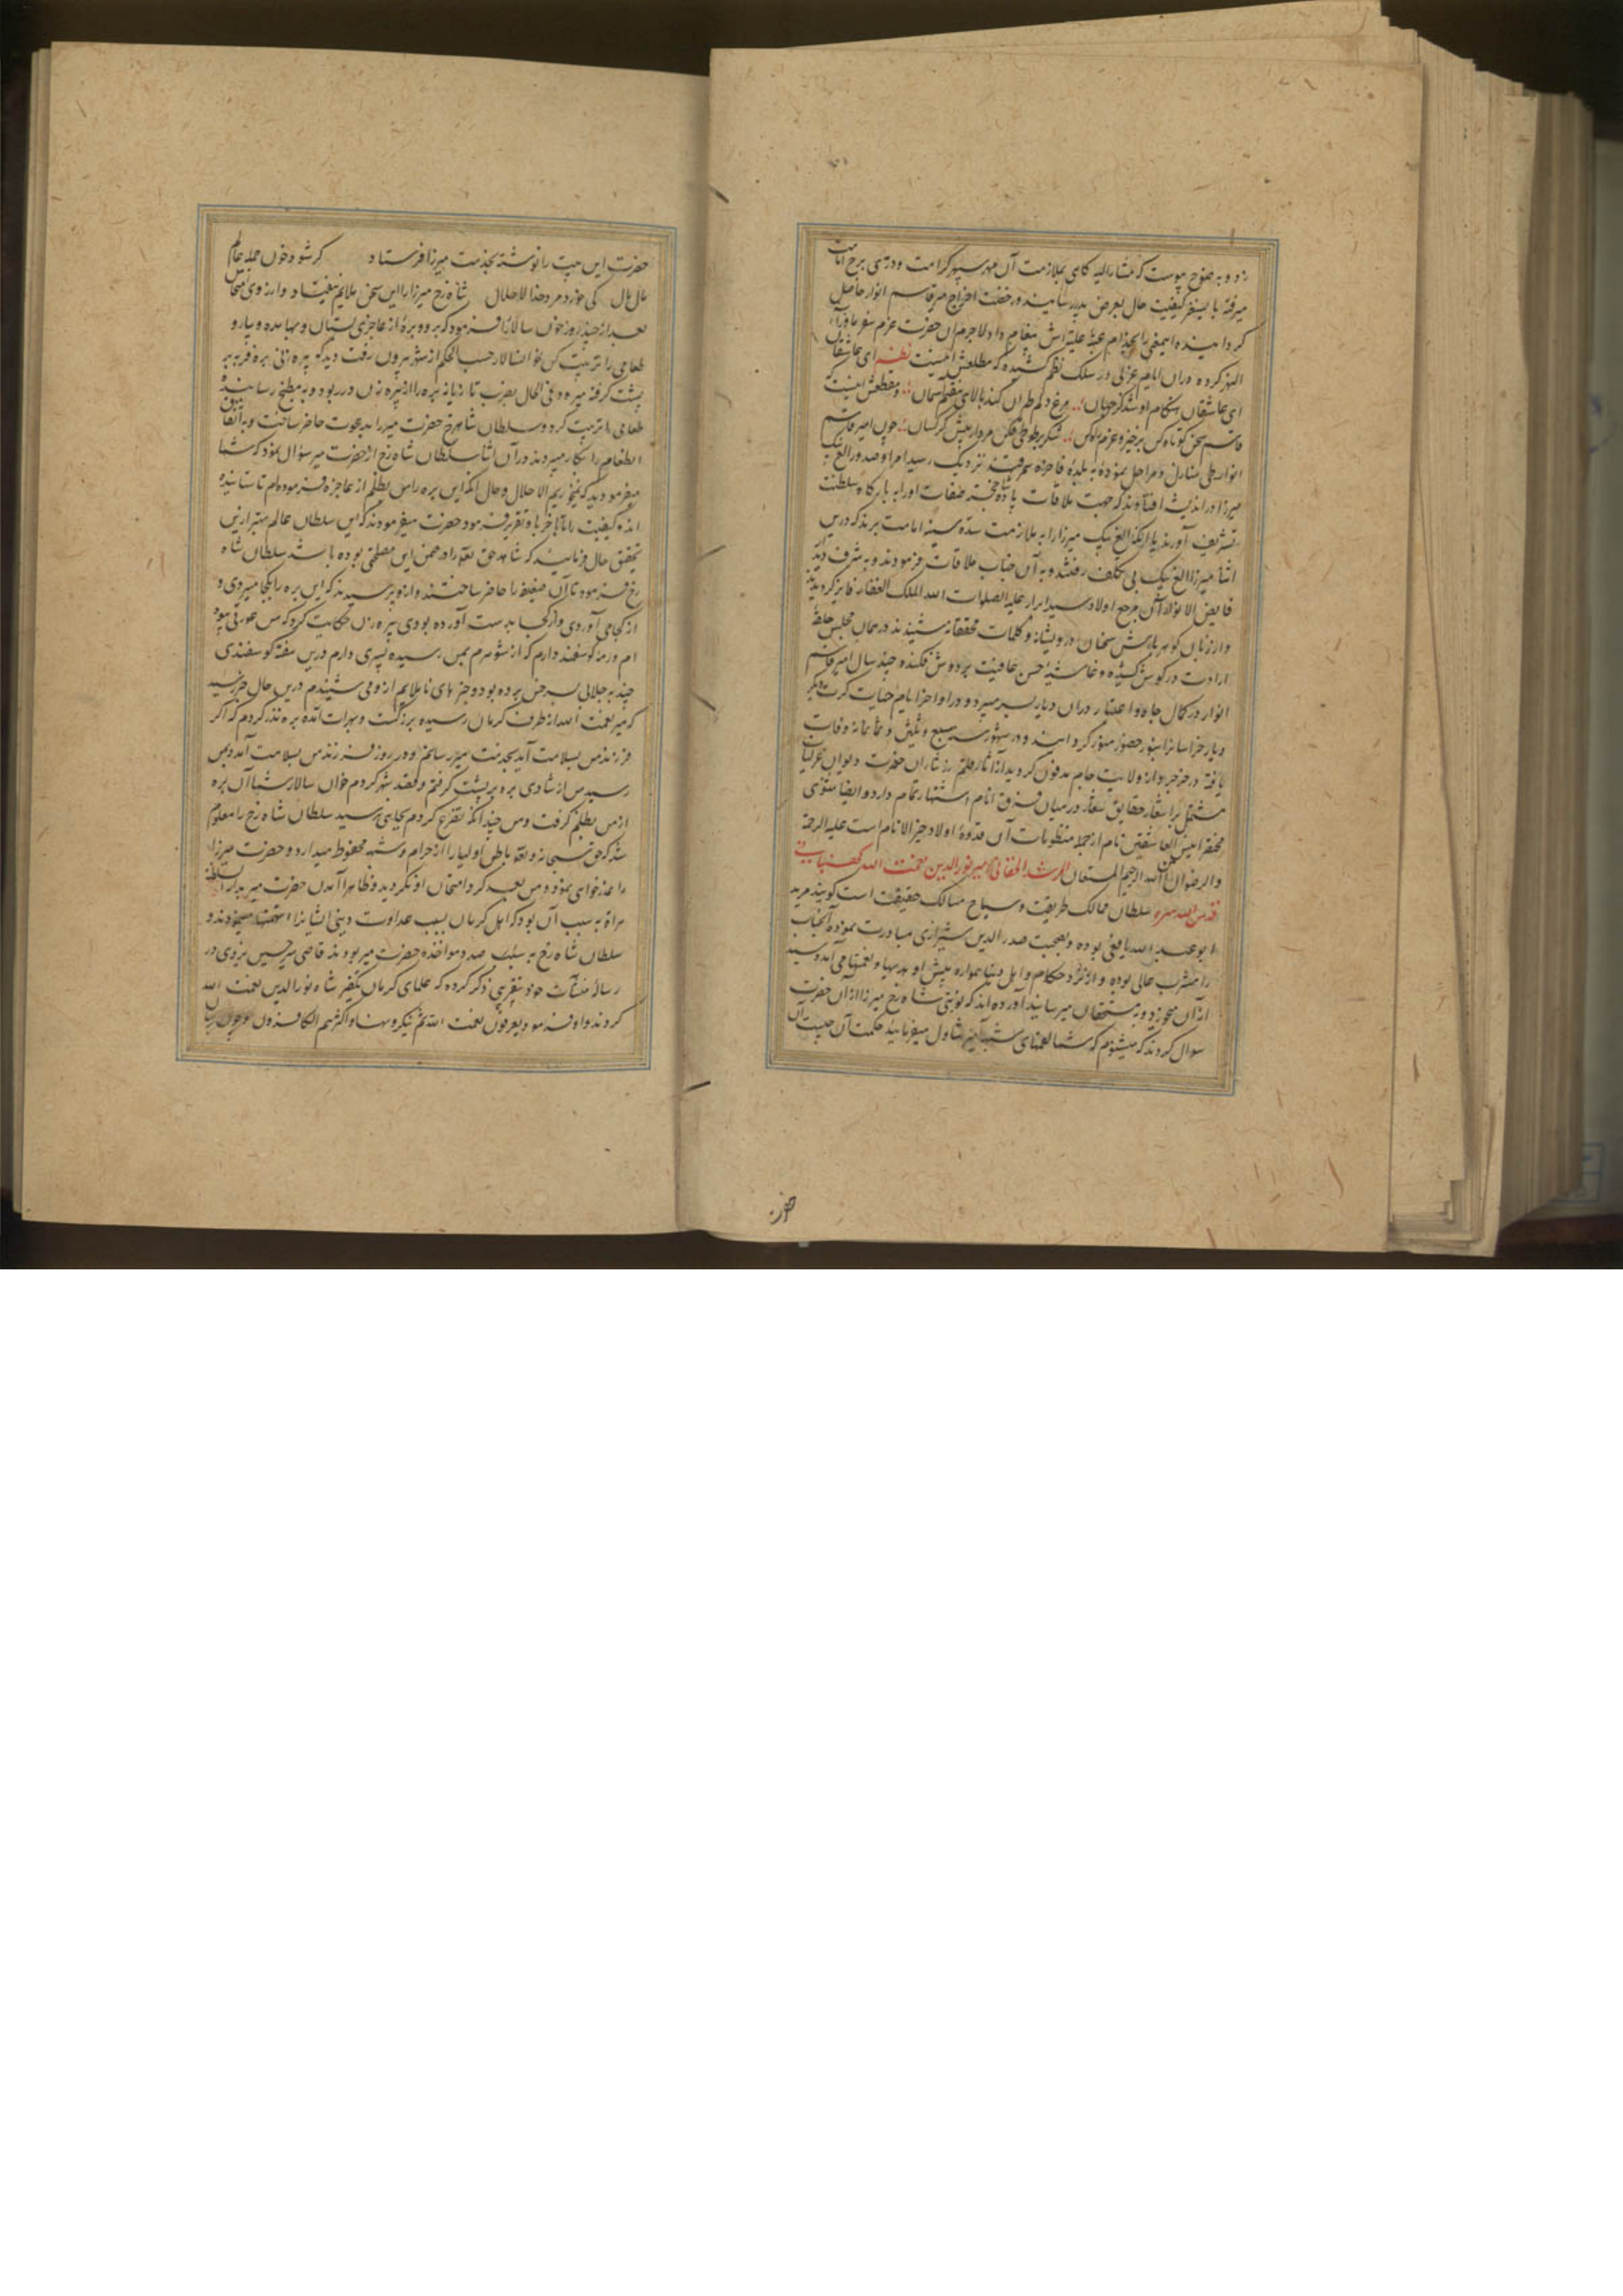 زد و به وضوح پیوست که مشارالیه گاهی بملازمت آن مهر سپهر کرامت و دری برج امامت
میرفته بایسنغر کیفیت حال بعرض پدر رسانیده و رخصت اخراج میر قاسم انوار حاصل
گردانیده این معنی را بخدام عتبهٔ علیه‌اش پیغام داد لاجرم آن حضرت عزم سفر ماورآء
النهر کرده در آن ایام غزلی در سلک نظم کشیده که مطلعش اینست نظم ای عاشقان
ای عاشقان هنگام آن شد کز جهان مرغ دلم طیران کند بالای هفتم آسمان و مقطعش اینست که
قاسم سخن کوتاه کن برخیز و عزم راه کن شکر بر طوطی فکن مردار پیش کرکسان چون امیر قاسم
انوار طی منازل و مراحل نموده به بلدهٔ فاخره سمرقند نزدیک رسید امرا و صدور الغ بیک
میرزا در اندیشه افتادند که جهت ملاقات پادشاه خجسته صفات او را به بارگاه سلطنت
تشریف آورند یا آنکه الغ بیک میرزا را به ملازمت سدهٔ سنیه امامت برند که درین
اثنا میرزا الغ بیک بی تکلف رفتند و به آن جناب ملاقات فرمودند و به شرف دید
فایض الانوار آن مرجع اولاد سید ابرار علیه الصلوات الله الملک الغفار فایز گردیدند
و از زبان گوهر بارش سخنان درویشانه و کلمات محققانه شنیدند در همان مجلس حلقهٔ
ارادت در گوش کشیده و غاشیهٔ حسن عاقبت بر دوش فکند و چند سال امیر قاسم
انوار در کمال جاه و اعتبار در آن دیار بسر میبرد و در اواخر ایام حیات کرت دیگر
دیار خراسانرا بنور حضور منور گردانید و در شهور سنه سبع و ثلثین و ثمانمائه وفات
یافته در خرجرد از ولایت جام مدفون گردید از آثار قلم درنثار آن حضرت دیوان غزلیات
مشتمل بر اشعار حقایق شعار در میان فرق انام اشتهار تمام دارد و ایضا مثنوی
مختصر انیس العاشقین نام از جمله منظومات آن قدوهٔ اولاد خیر الانام است علیه الرحمة
والرضوان من الله الرحیم المستعان المرشد الحقانی امیر نورالدین نعمت الله کهنبانی
قدس الله سره سلطان ممالک طریقت و سیاح مسالک حقیقت است گویند مرید
ابو عبد الله یافعی بوده و بصحبت صدر الدین شیرازی مبادرت نموده آنجناب
را مشرب عالی بوده و از نزد حکام و اهل دنیا همواره پیش او هدیها و نعمتها می آمد و سید
از آن میخورد و به مستحقان میرسانید آورده اند که نوبتی شاه رخ میرزا از آن حضرت
سوال کردند که میشنوم که شما لقمهای شبه آمیز تناول میفرمائید حکمت آن چیست آن
حضرت
حضرت این بیت را نوشته بخدمت میرزا فرستاد گر شود خون جمله عالم
مال مال کی خورد مرد خدا الا حلال شاه رخ میرزا را این سخن ملایم نیفتاد و از روی امتحان
بعد از چند روز خوان سالار را فرمود که برو و برهٔ از عاجزی بستان و بها مده و بیار و
طعامی را ترتیب کن خوانسالار حسب الحکم از شهر بیرون رفت دید که پیره زنی بره فربه بر
پشت گرفته میرود فی الحال بضرب تازیانه بره را از پیره زن در ربود و به مطبخ رسانید و
طعامی را ترتیب کرد و سلطان شاهرخ حضرت میر را بدعوت حاضر ساخت و به اتفاق
آنطعام را بکار میبردند در آن اثنا سلطان شاه رخ از حضرت میر سؤال نمود که شما
میفرمودید که نمیخوریم الا حلال و حال آنکه این بره را من بظلم از عاجزه فرموده‌ام تا ستانیده
اند و کیفیت را تا بآخر با و تقریر فرمود حضرت میر فرمودند که ای سلطان عالم بهتر ازین
تحقیق حال فرمائید که شاید حق تعالی را در ضمن این مصلحتی بوده باشد سلطان شاه
رخ فرمود تا آن ضعیفه را حاضر ساختند و ازو پرسیدند که این بره را بکجا میبردی و
از کجا می آوردی و از کجا بدست آورده بودی پیره زن حکایت کرد که من عورتی بیوه
ام و رمهٔ گوسفند دارم که از شوهرم بمن رسیده پسری دارم درین هفته گوسفندی
چند به جلابی بسرخس برده بود و خبر های ناملایم از و می شنیدم درین حال خبر رسید
که میر نعمت الله از طرف کرمان رسیده بزرگست و بهرات آمده بره نذر کردم که اگر
فرزند من بسلامت آید بخدمت میر رسانم و در روز فرزند من بسلامت آمد و بمن
رسید من از شادی بره بر پشت گرفتم و قصد شهر کردم خوان سالار شما آن بره
از من بظلم گرفت و من چندانکه تضرع کردم بجایی نرسید سلطان شاه رخ را معلوم
شد که حق سبحانه و تعالی باطن اولیا را از حرام و شبه محفوظ میدارد و حضرت میرزا
را عذرخواهی نمود و من بعد گرد امتحان او نگردید و ظاهرا آمدن حضرت میر بدار السلطنه
هراة به سبب آن بود که اهل کرمان بسبب عداوت دینی ایشانرا استخفاف مینمودند و
سلطان شاه رخ به سبب در صدد مواخذه حضرت میر بودند قاضی میر حسین یزدی در
رسالهٔ منشآت خود بتقریبی ذکر کرده که علمای کرمان تکفیر شاه نورالدین نعمت الله
کردند و او فرمود یعرفون نعمت الله ثم ینکرونها و اکثرهم الکافرون و چون